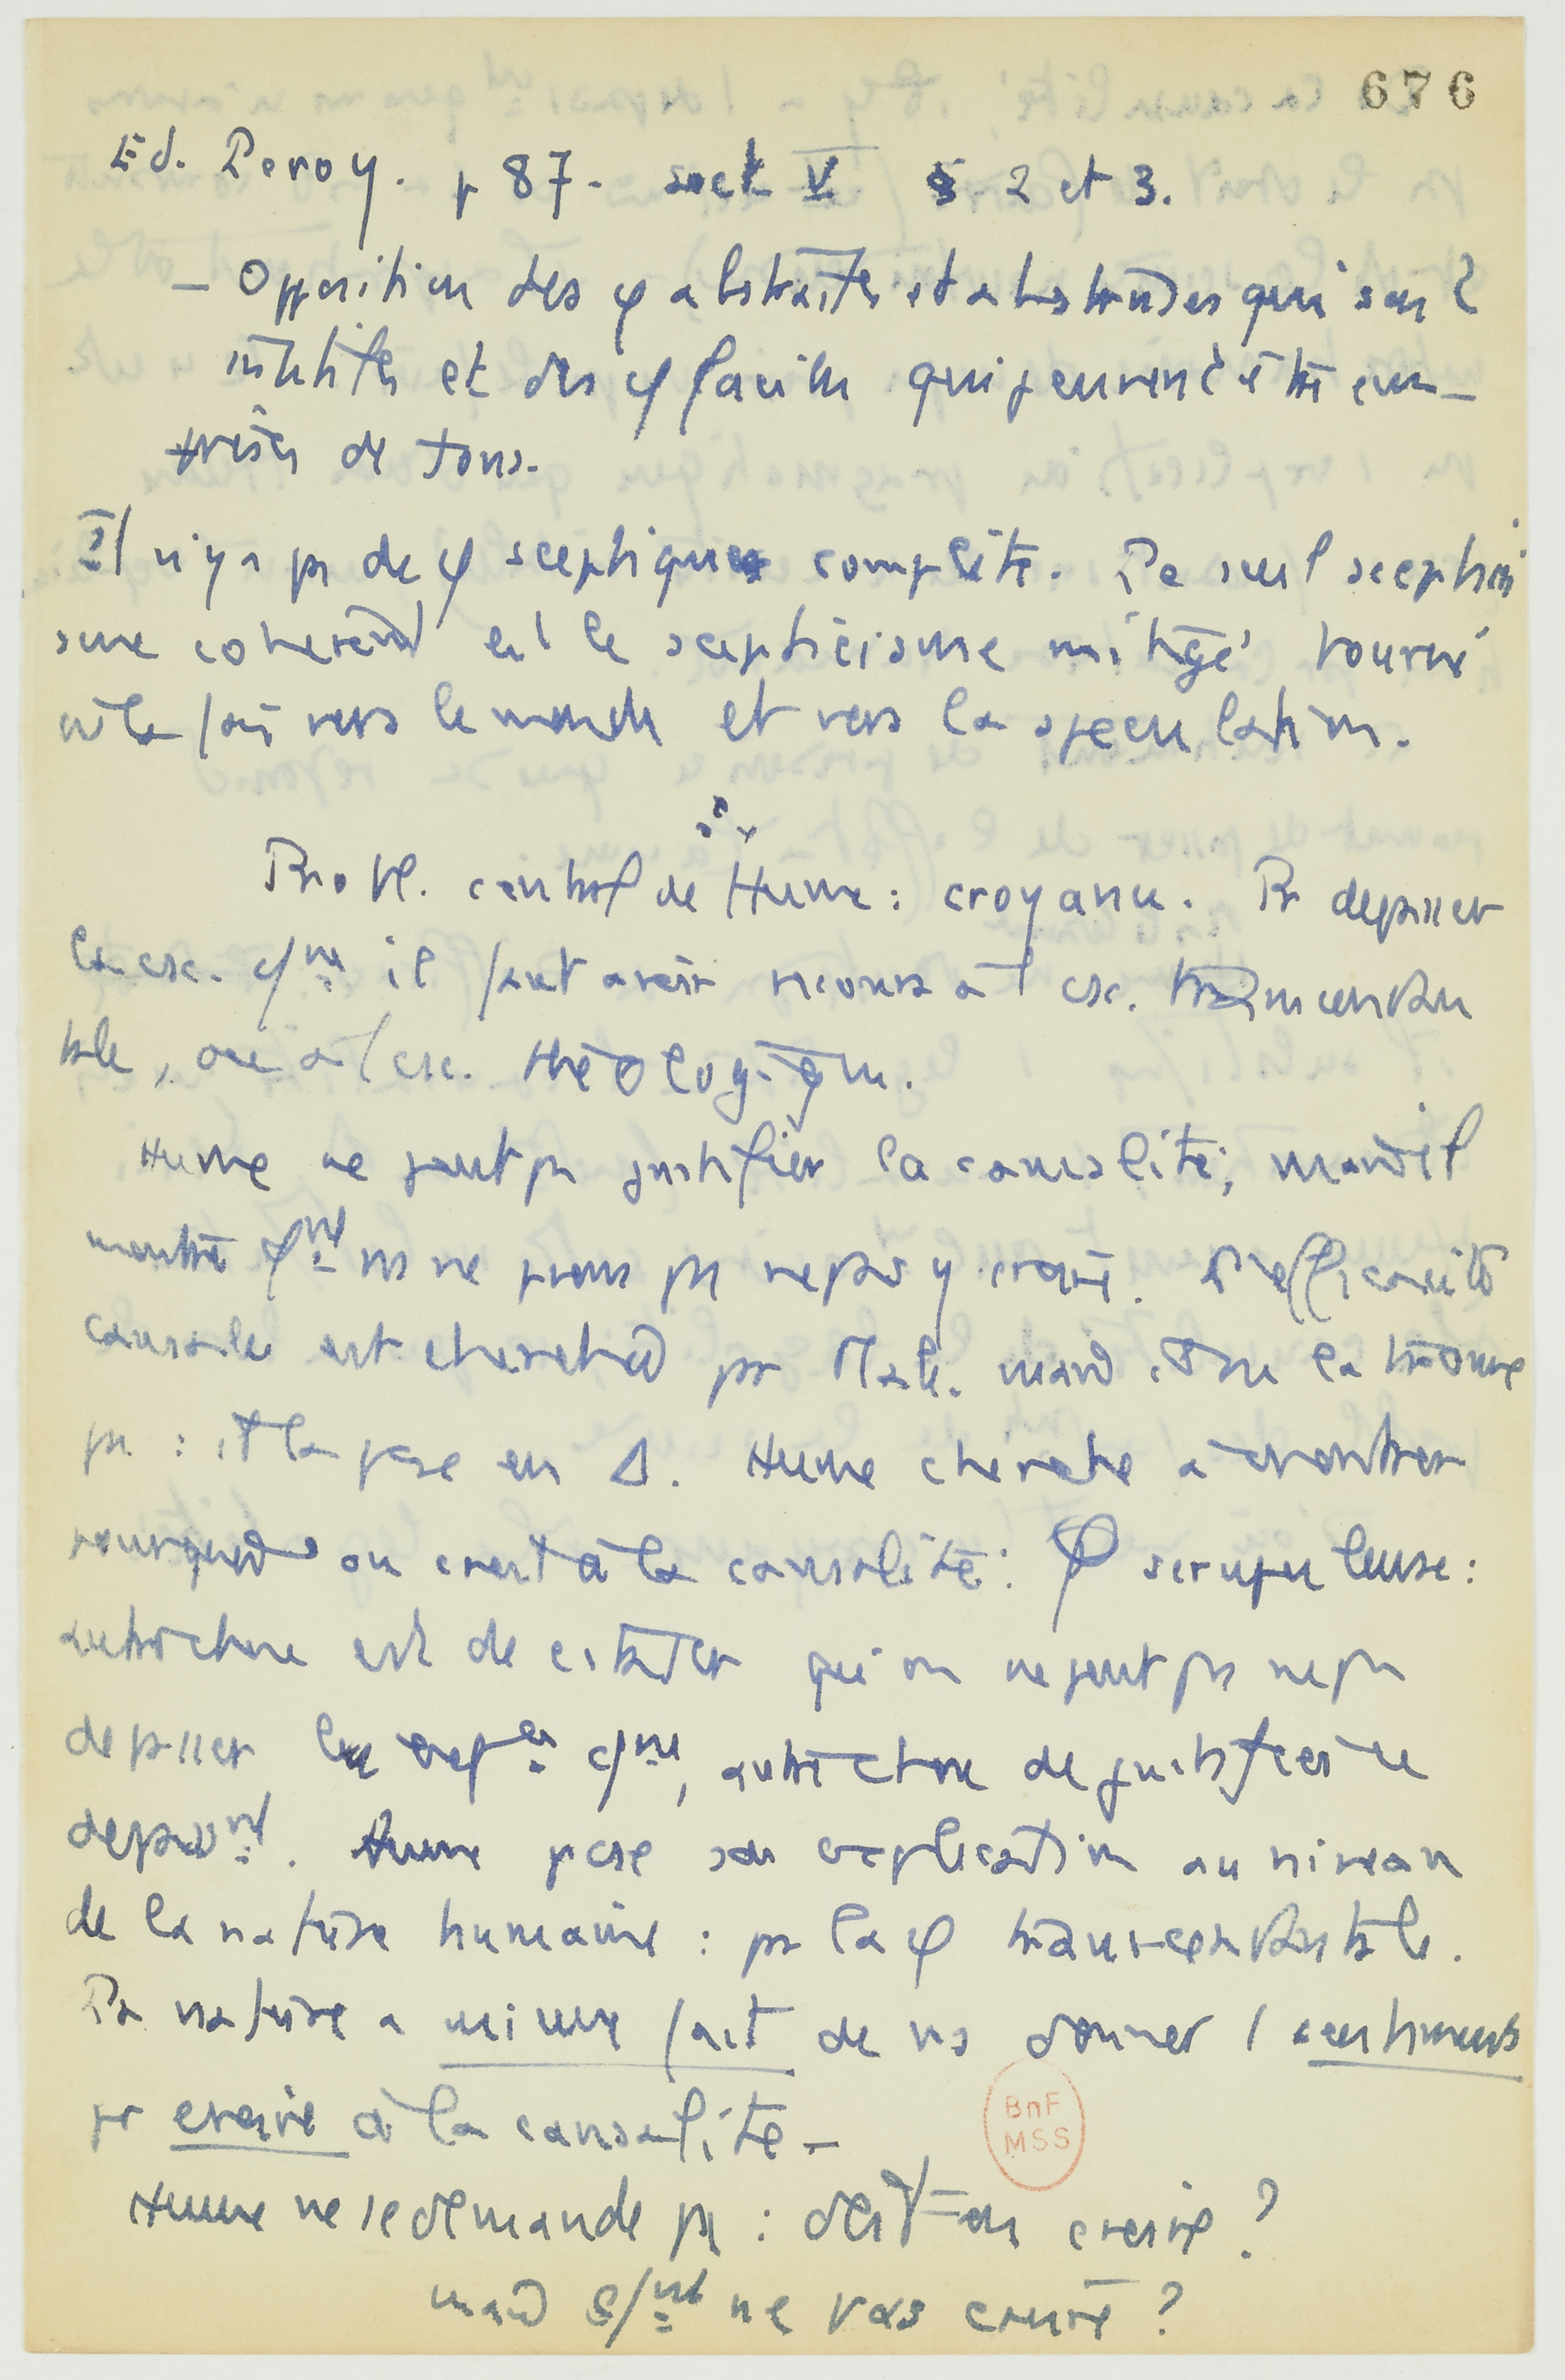 676
Ed. Leroy. p 87. sect V § 2 et 3.
— Opposition des φ abstraites et abstruses qui sont
inutiles et des φ faciles qui peuvent être com-
prises de tous.
Il n'y a ps de φ sceptique complète. Le seul scepticis
sme coherent est le scepticisme mitigé tourné
à la fois vers le monde et vers la speculation.
Probl. central de Hume : croyance. Pr depasser
la csc. φque il faut avoir recours à l csc. transcendan
tale, ou à l csc. théologique.
Hume ne peut ps justifier la causalité; mais il
montre qt ns ne pvons ps ne pas y croire. L'efficacité
causale est cherchée pr Malb. mais il ne la trouve
ps : il la pose en Δ. Hume cherche à montrer
pourquoi on croit à la causalité : φ scrupuleuse :
autre chose est de constater qu'on ne peut ps ne ps
depasser l φque, autre chose de justifier ce
depasst. Hume pose son explication au niveau
de la nature humaine : pr la φ transcendantale.
La nature a mieux fait de ns donner l sentiments
pr croire à la causalité —
Hume ne se demande ps : doit-on croire ?
mais ne pas croire ?
BnF
MSS